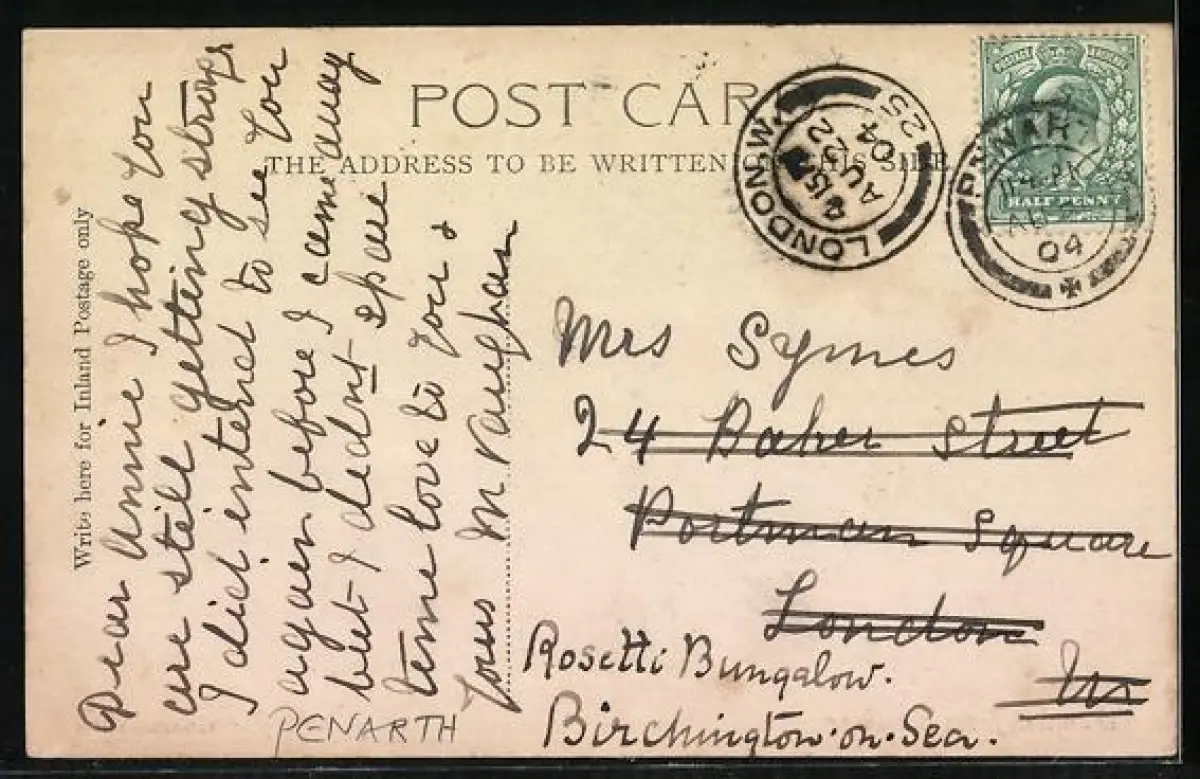 POST CAR
THE ADDRESS TO BE WRITTEN ON THIS SIDE
Write here for Inland Postage only
Dear Annie I hope you
are still getting strong
I did intened to see you
again before I came away
but I dednt spare
time love to you &
yours M Vaughan
PENARTH
LONDON.W.
AU 22
04
25
PENARTH
AU
04
HALF PENNY
Mrs Symes
24 Baker Street
Portman Square
London
Rosetti Bungalow.
Birchington-on-Sea.